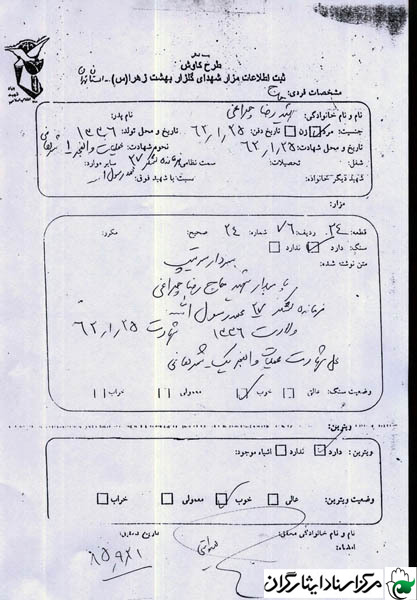 بسمه تعالی
طرح کاوش
ثبت اطلاعات مزار شهدای گلزار بهشت زهرا(س) - استان تهران
مشخصات فردی: حاج
نام و نام خانوادگی: شهید رضا چراغی نام پدر:
جنسیت: مرد زن تاریخ دفن: ۶۲/۱/۲۵ تاریخ و محل تولد: ۱۳۳۶
تاریخ و محل شهادت: ۶۲/۱/۲۵ نحوه شهادت: عملیات والفجر ۱ شرهانی
شغل: تحصیلات: سمت نظامی: فرمانده لشکر ۲۷ سایر موارد:
شهید دیگر خانواده: نسبت با شهید فوق: محمد رسول ا...
مزار:
قطعه: ۲۴ ردیف: ۷۶ شماره: ۲۴ صحیح: مکرر:
سنگ: دارد ندارد
متن نوشته شده:
سردار سرتیپ
پاسدار شهید حاج رضا چراغی
فرمانده لشکر ۲۷ محمد رسول الله
ولادت ۱۳۳۶ شهادت ۶۲/۱/۲۵
محل شهادت عملیات والفجر یک - شرهانی
وضعیت سنگ: عالی خوب معمولی خراب
ویترین:
ویترین: دارد ندارد اشیاء موجود:
وضعیت ویترین: عالی خوب معمولی خراب
نام و نام خانوادگی محقق: تاریخ
امضاء:
۸۵/۹/۲۱
مرکز اسناد ایثارگران